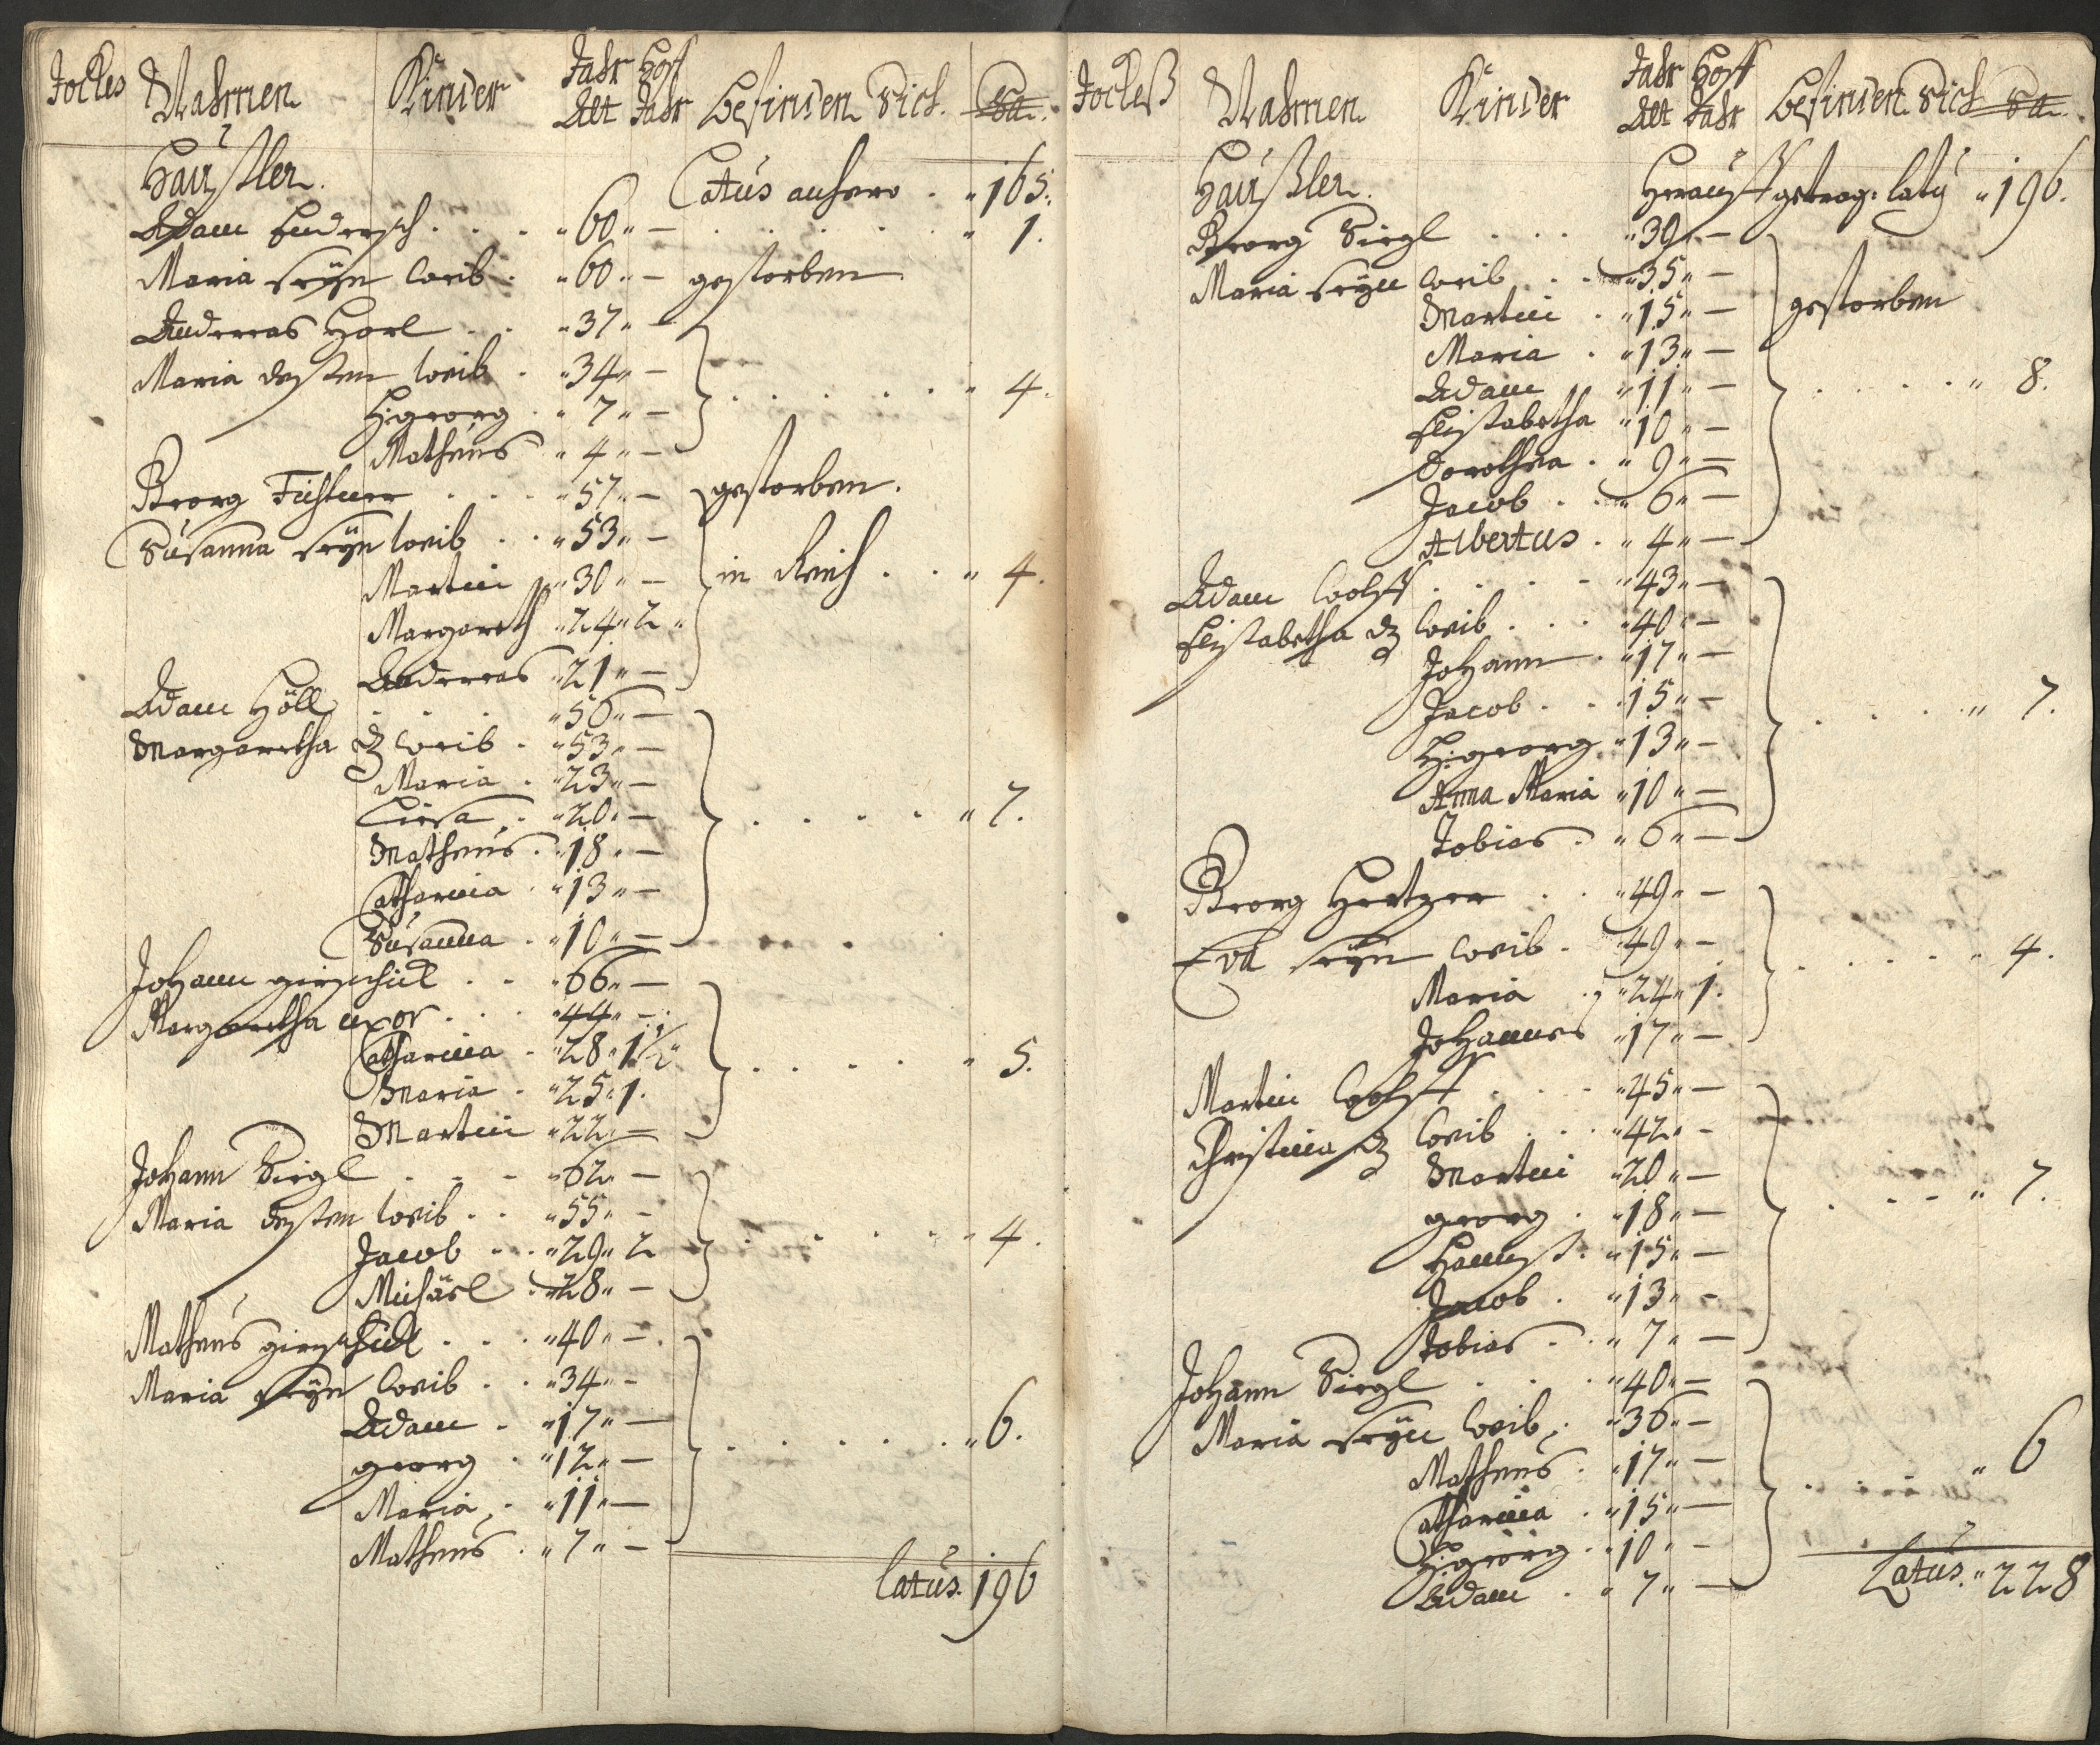 Jockes Nahmen Kinder Jahr Alt Hoff Jahr Befinden Sich. Sa.
Häußler. Latus anhero . " 165.
Adam Endersch . . . " 60 " — . . . . . " 1.
Maria seÿn Weib . " 60 " — gestorben
Andreas Horl . . " 37 " —
Maria dessen Weib . " 34 " —
H: georg . " 7 " — . . . . . " 4.
Matheus " 4 " —
Georg Fichtner . . . " 57 " — gestorben.
Susanna seÿn Weib . . " 53 " —
Martin " 30 " — in Reich . . " 4.
Margareth " 24 " 2 "
Andreas " 21 " —
Adam Höll . . . " 56 " —
Margaretha dz Weib . " 53 " —
Maria . " 23 " —
Liesa . " 20 " — . . . . " 7.
Matheus . " 18 " —
Catharina . " 13 " —
Susanna . " 10 " —
Johann girschick . . " 66 " —
Margaretha uxor . . . " 44 " —
Catharina . " 28 " 1 1/2 "
Maria . " 25 " 1. . . . . " 5.
Martin " 22 " —
Johann Siegl . . . " 62 " —
Maria dessen Weib . . " 55 " —
Jacob . . . " 29 " 2 . . . . " 4.
Michäel . " 28 " —
Matheus girschick . . . " 40 " —
Maria seÿn Weib . . " 34 " —
Adam . " 17 " —
georg . " 12 " — . . . . . " 6.
Maria . " 11 " —
Matheus . " 7 " —
latus. 196
Jockeß Nahmen Kinder Jahr Alt Hoff Jahr Befinden Sich Sa.
Häußler. Herauß getrag: latus " 196.
Georg Siegl . . . " 39 " —
Maria seÿn Weib . . " 35 " —
Martin . " 15 " — gestorben
Maria . " 13 " —
Adam " 11 " — . . . . " 8.
Elisabetha " 10 " —
Dorothea . " 9 " —
Jacob . . " 6 " —
Albertus . " 4 " —
Adam Wolff . . . . " 43 " —
Elisabetha dz Weib . . . " 40 " —
Johann . " 17 " —
Jacob . . " 15 " — . . . . " 7.
H: georg " 13 " —
Anna Maria " 10 " —
Tobias . " 6 " —
Georg Hertzer . . " 49 " —
Eva seÿn Weib . " 49 " — . . . . . " 4.
Maria . " 24 " 1.
Johannes " 17 " —
Martin Wolff . . . " 45 " —
Christina dz Weib . . . " 42 " —
Martin " 20 " —
georg . " 18 " — . . . " 7.
Hannß . " 15 " —
Jacob . " 13 " —
Tobias . . " 7 " —
Johann Siegl . . . " 40 " —
Maria seÿn Weib . " 36 " —
Matheus . " 17 " —
Catharina . " 15 " — . . . " 6
H: georg . " 10 " —
Adam . " 7 " —
Latus. " 228